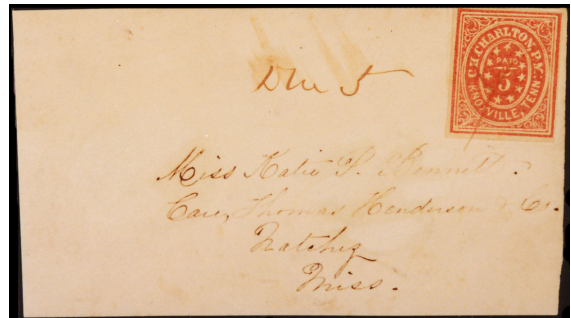 C.H. CHARLTON, P.M.
PAID
5
KNOXVILLE, TENN.
Due 5
Miss Katie P. Bennett.
Care, Thomas Henderson & Co.
Natchez
Miss.